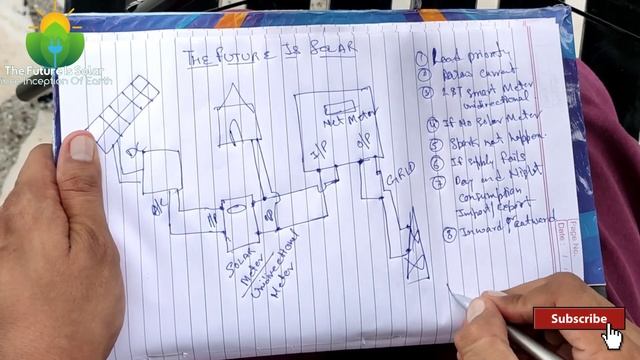 The Future Is Solar
Inception Of Earth
THE FUTURE IS SOLAR
Net Meter
I/P
O/P
GRID
DC
A/C
I/P
O/P
SOLAR
Meter
Unidirectional
Meter
① Load priority
②
③ 1 BT Smart Meter
unidirectional
④ If No Solar Meter
⑤ Spark not happen
⑥ If supply Fails
⑦ Day and Night
Consumption
Import/Export
or
⑧ Inward / outward
Page No.
Date:
Subscribe